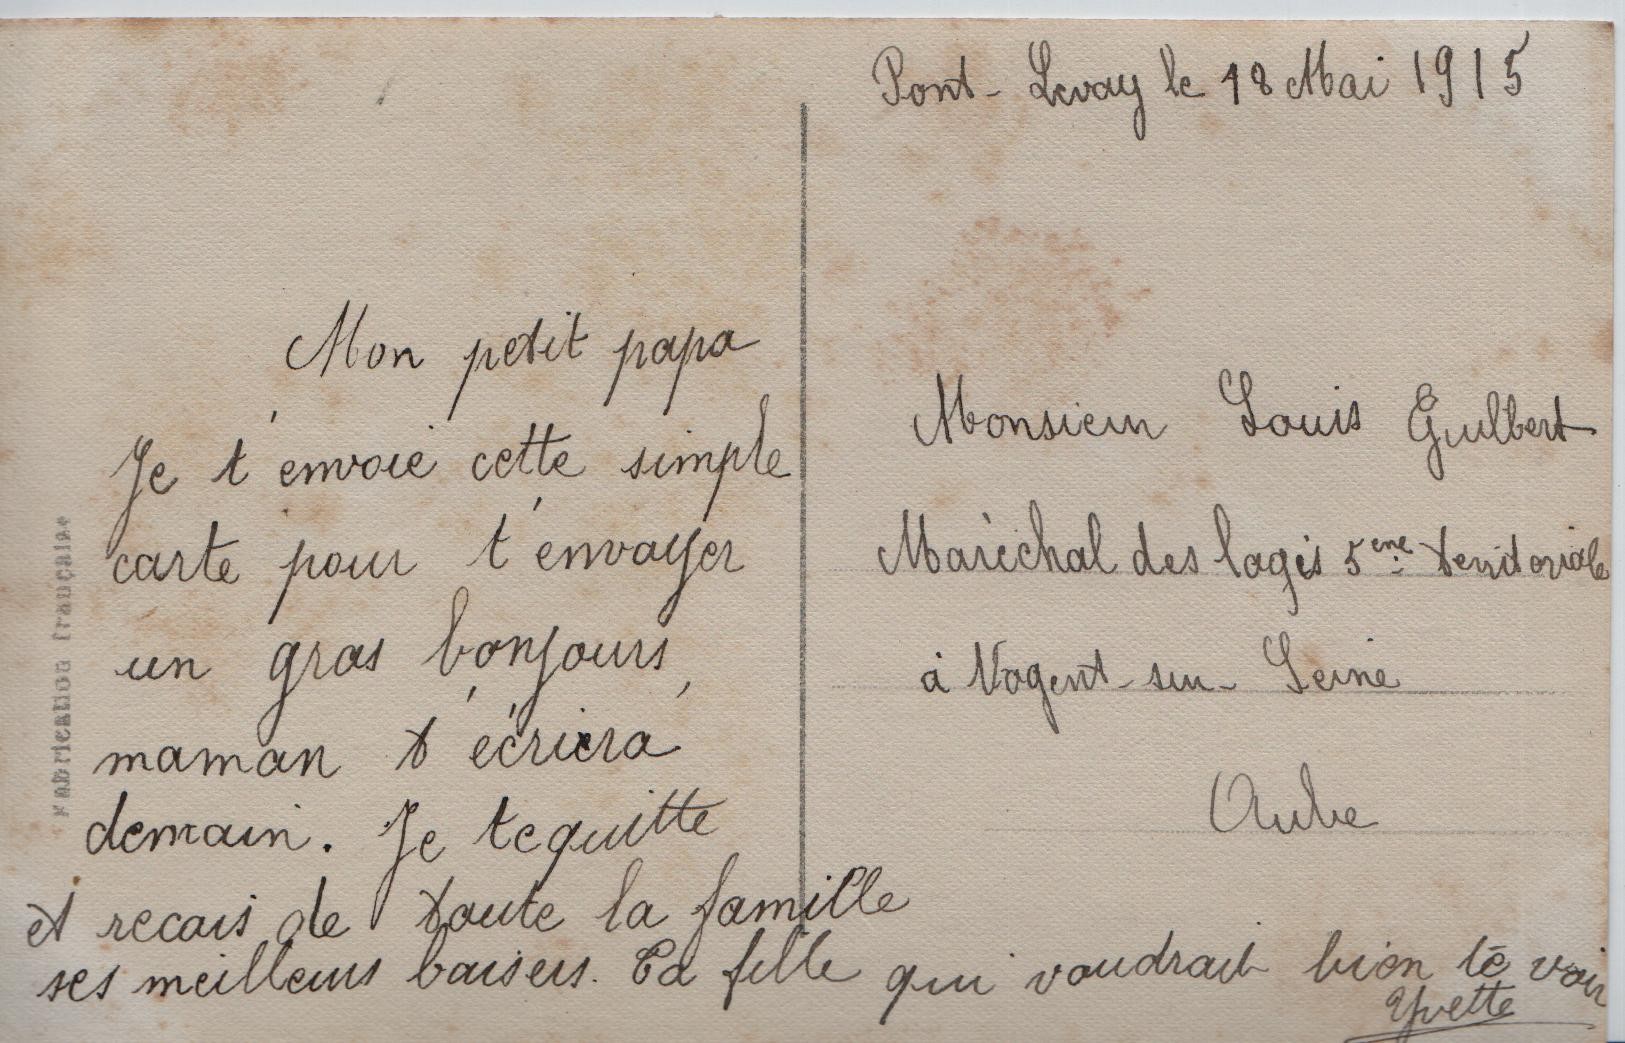 Pont-Levoy le 18 Mai 1915
Mon petit papa
Je t'envoie cette simple
carte pour t'envoyer
un gros bonjours,
maman t'écriera
demain. Je te quitte
et recois de toute la famille
ses meilleurs baisers. Ta fille qui voudrait bien te voir
Yvette
Monsieur Louis Guilbert
Maréchal des logis 5eme territoriale
à Nogent-sur-Seine
Aube
Fabrication française